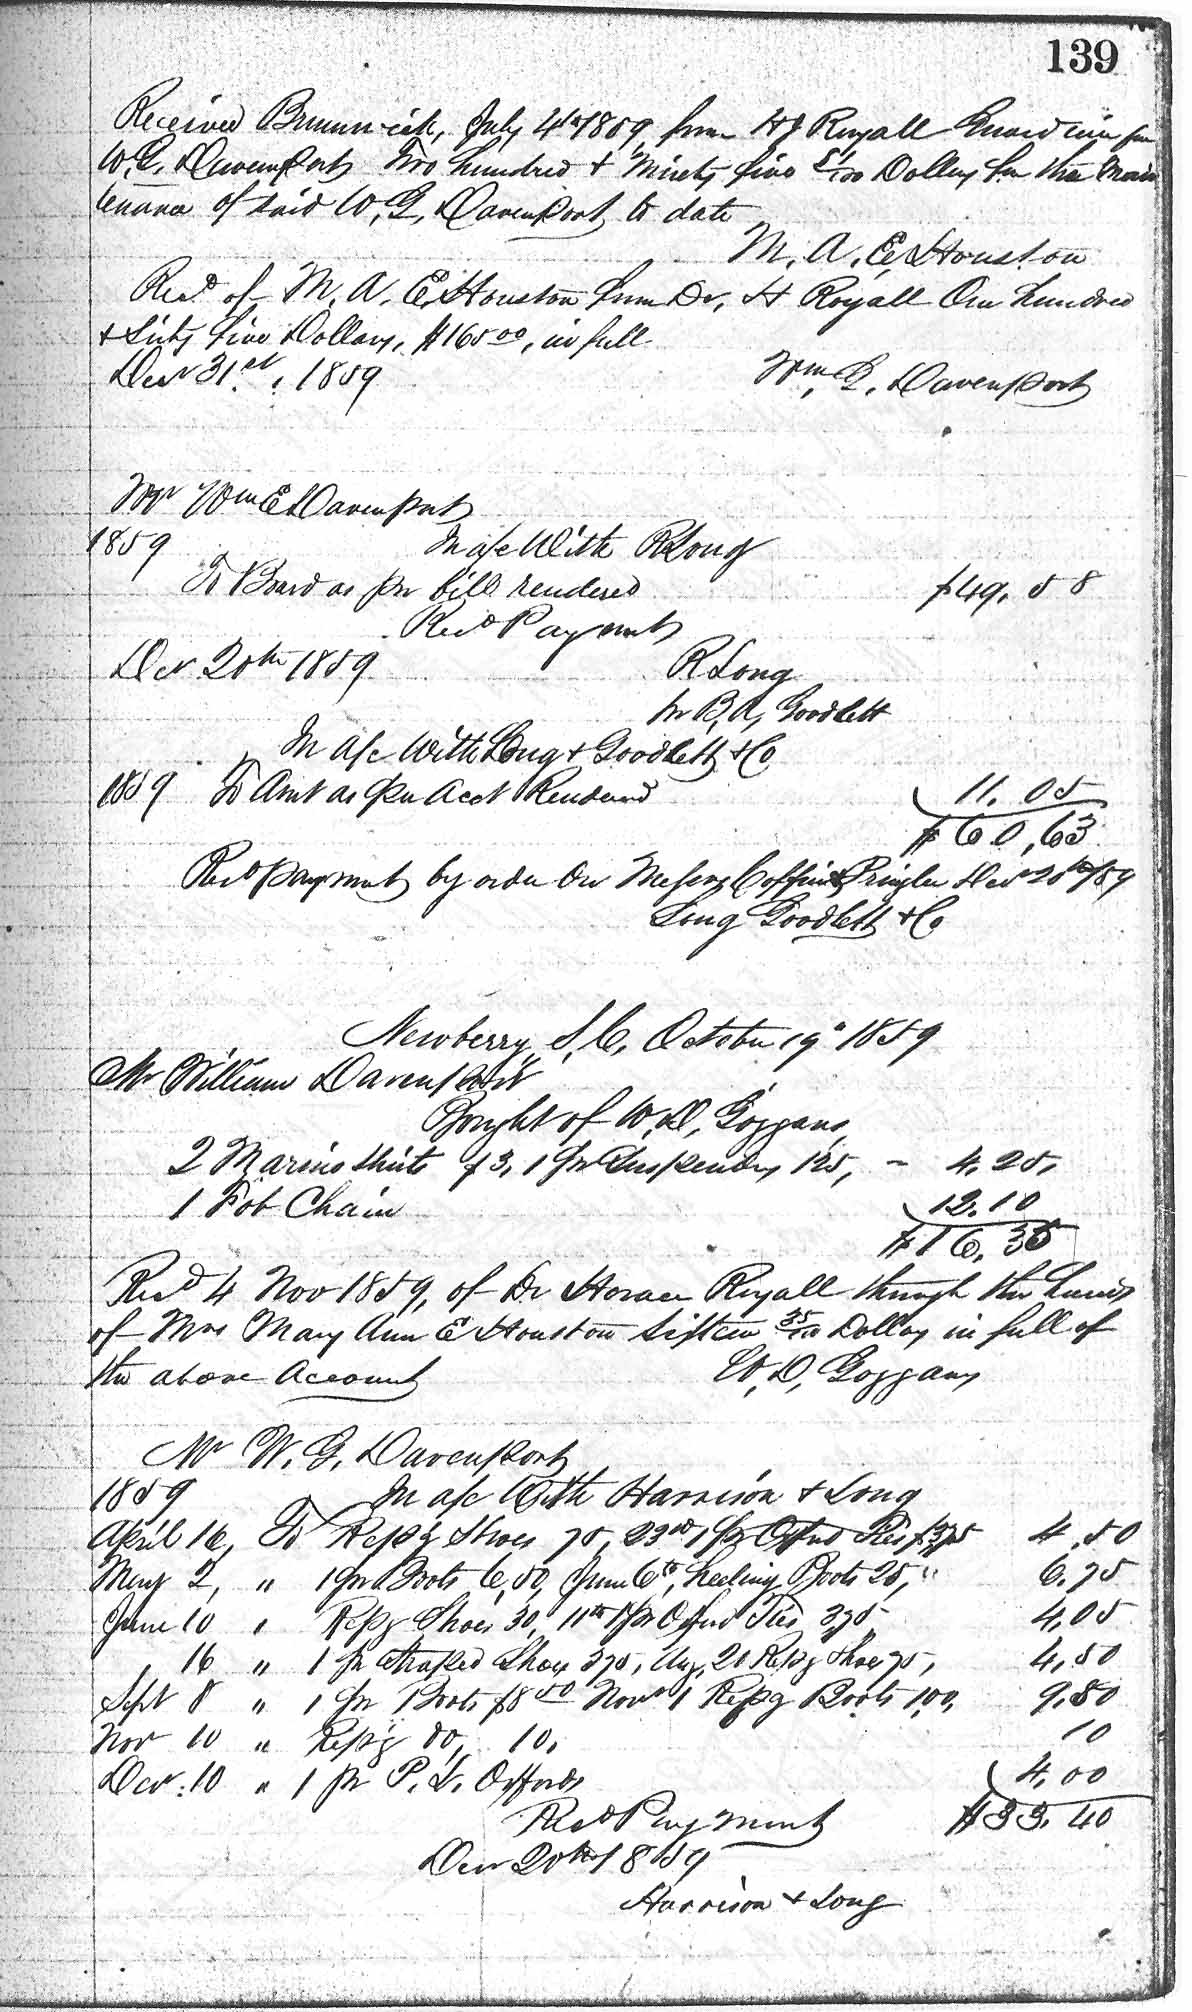 139
Received Brunswick, July 4th 1859, from H J Royall Guardian for
W. G. Davenport Two hundred & Ninety five 51/100 Dollars for the main
tenance of said W, G, Davenport to date
M. A. E, Houston
Recd of M. A. E. Houston from Dr, H Royall One hundred
& Sixty five Dollars, $165 00, in full
Decr 31st, 1859 Wm, G, Davenport
Mr Wm E Davenport
1859 In a/c With R Long
To Board as per bill rendered $49.58
Recd Payment
Decr 20th 1859 R Long
per B, A, Goodlett
In a/c With Long & Goodlett & Co
1859 To Amt as per Acct Rendered 11.05
$60,63
Recd payment by order on Messrs Coffin & Pringle Decr 20th/59
Long Goodlett & Co
Newberry, S, C, October 19" 1859
Mr William Davenport
Bought of W, D, Goggans
2 Marino Shirts $3, 1 pr Suspenders 125, - 4,25,
1 Fob Chain 12.10
$16,35
Recd 4 Nov 1859, of Dr Horace Royall through the hands
of Mrs Mary Ann E Houston Sixteen 35/100 Dollars in full of
the above Account W, D, Goggans
Mr W. G. Davenport
1859 In a/c With Harrison & Long
April 16, To Rep'g Shoes 75, 23rd 1 pr Oxford Ties $375 4,50
May 2, " 1 pr Boots 6,50, June 6th, heeling Boots 25, " 6.75
June 10 " Rep'g Shoes 30, 11th 1 pr Oxford Ties 375 4,05
, 16 " 1 pr Straped Shoes 375, Aug, 20 Rep'g Shoes 75, 4,50
Sept 8 " 1 pr Boots $8 50 Novr 1 Rep'g Boots 100, 9,50
Nov 10 " Rep'g do, 10, 10
Decr. 10 " 1 pr P. L. Oxfords 4,00
Recd Payment $33.40
Decr 20th 1859
Harrison & Long